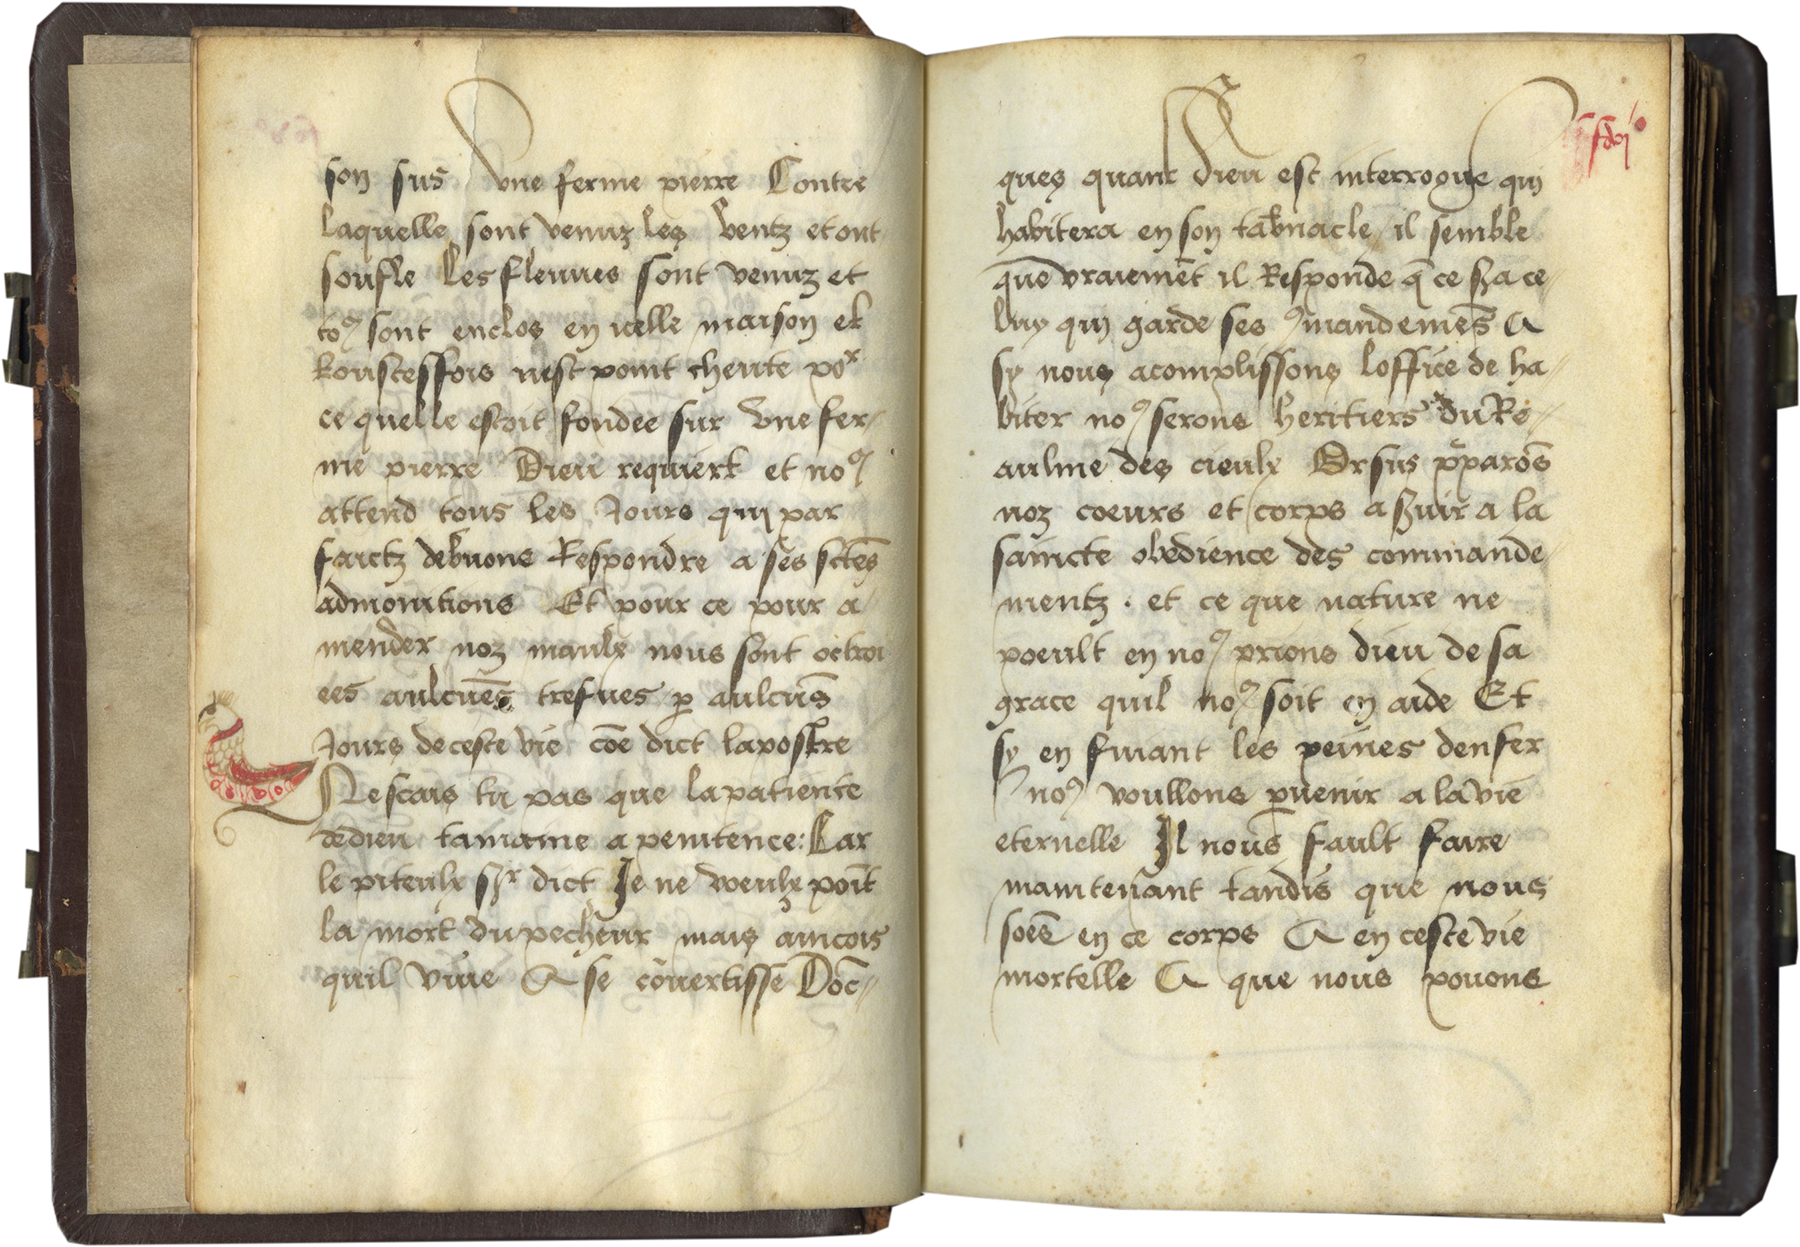 son sus vne ferme pierre Contre
laquelle sont venuz les ventz et ont
soufle Les fleuues sont venuz et
to9 sont enclos en icelle maison et
touttesffois nest point cheute por
ce quelle estoit fondee sur vne fer-
me pierre Dieu requiert et no9
attend tous les Jours qui par
faictz debuons Respondre a ses sctes
admonitions Et pour ce pour a-
mender noz maulx nous sont octroi
ees aulcues trefues p aulcus
Jours de ceste vie coe dict lapostre
Ne scais tu pas que la patience
de dieu tamaine a penitence: Car
le piteulx Sr dict Je ne voeulx poit
la mort du pecheur mais aincois
quil viue & se couertisse Doc-
ques quant dieu est interrogue qui
habitera en son tabnacle, il semble
que vraiemet il Responde q ce sa ce-
luy qui garde ses 9mandemes &
sy nous acomplissons loffice de ha-
biter no9 serons heritiers du Ro-
aulme des cieulx Orsus pparos
noz coeurs et corps a suir a la
saincte obedience des commande-
mentz . et ce que nature ne
poeult en no9 prions dieu de sa
grace quil no9 soit en aide Et
sy en fuiant les peines denfer
no9 voullons puenir a la vie
eternelle Il nous fault faire
maintenant tandis que nous
soes en ce corps & en ceste vie
mortelle & que nous pouons